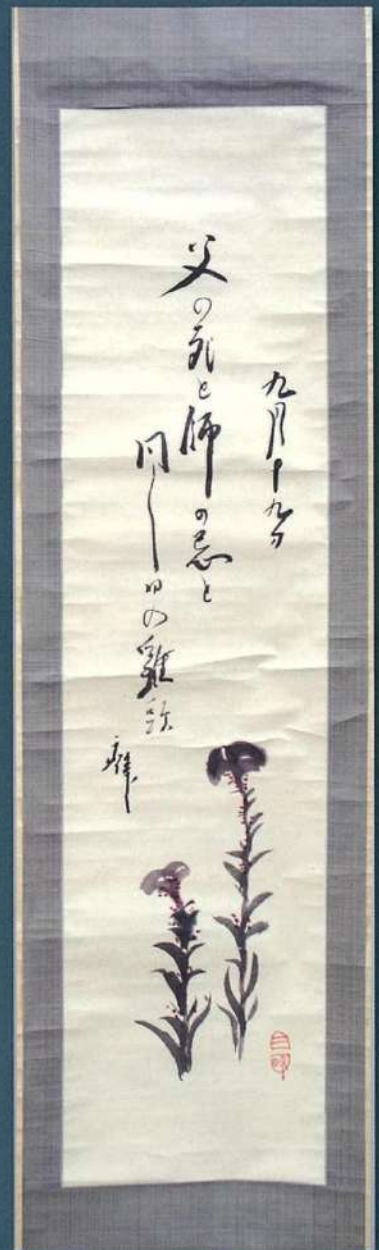 九月十九日
父の死と師の忌と
同し日の雞頭